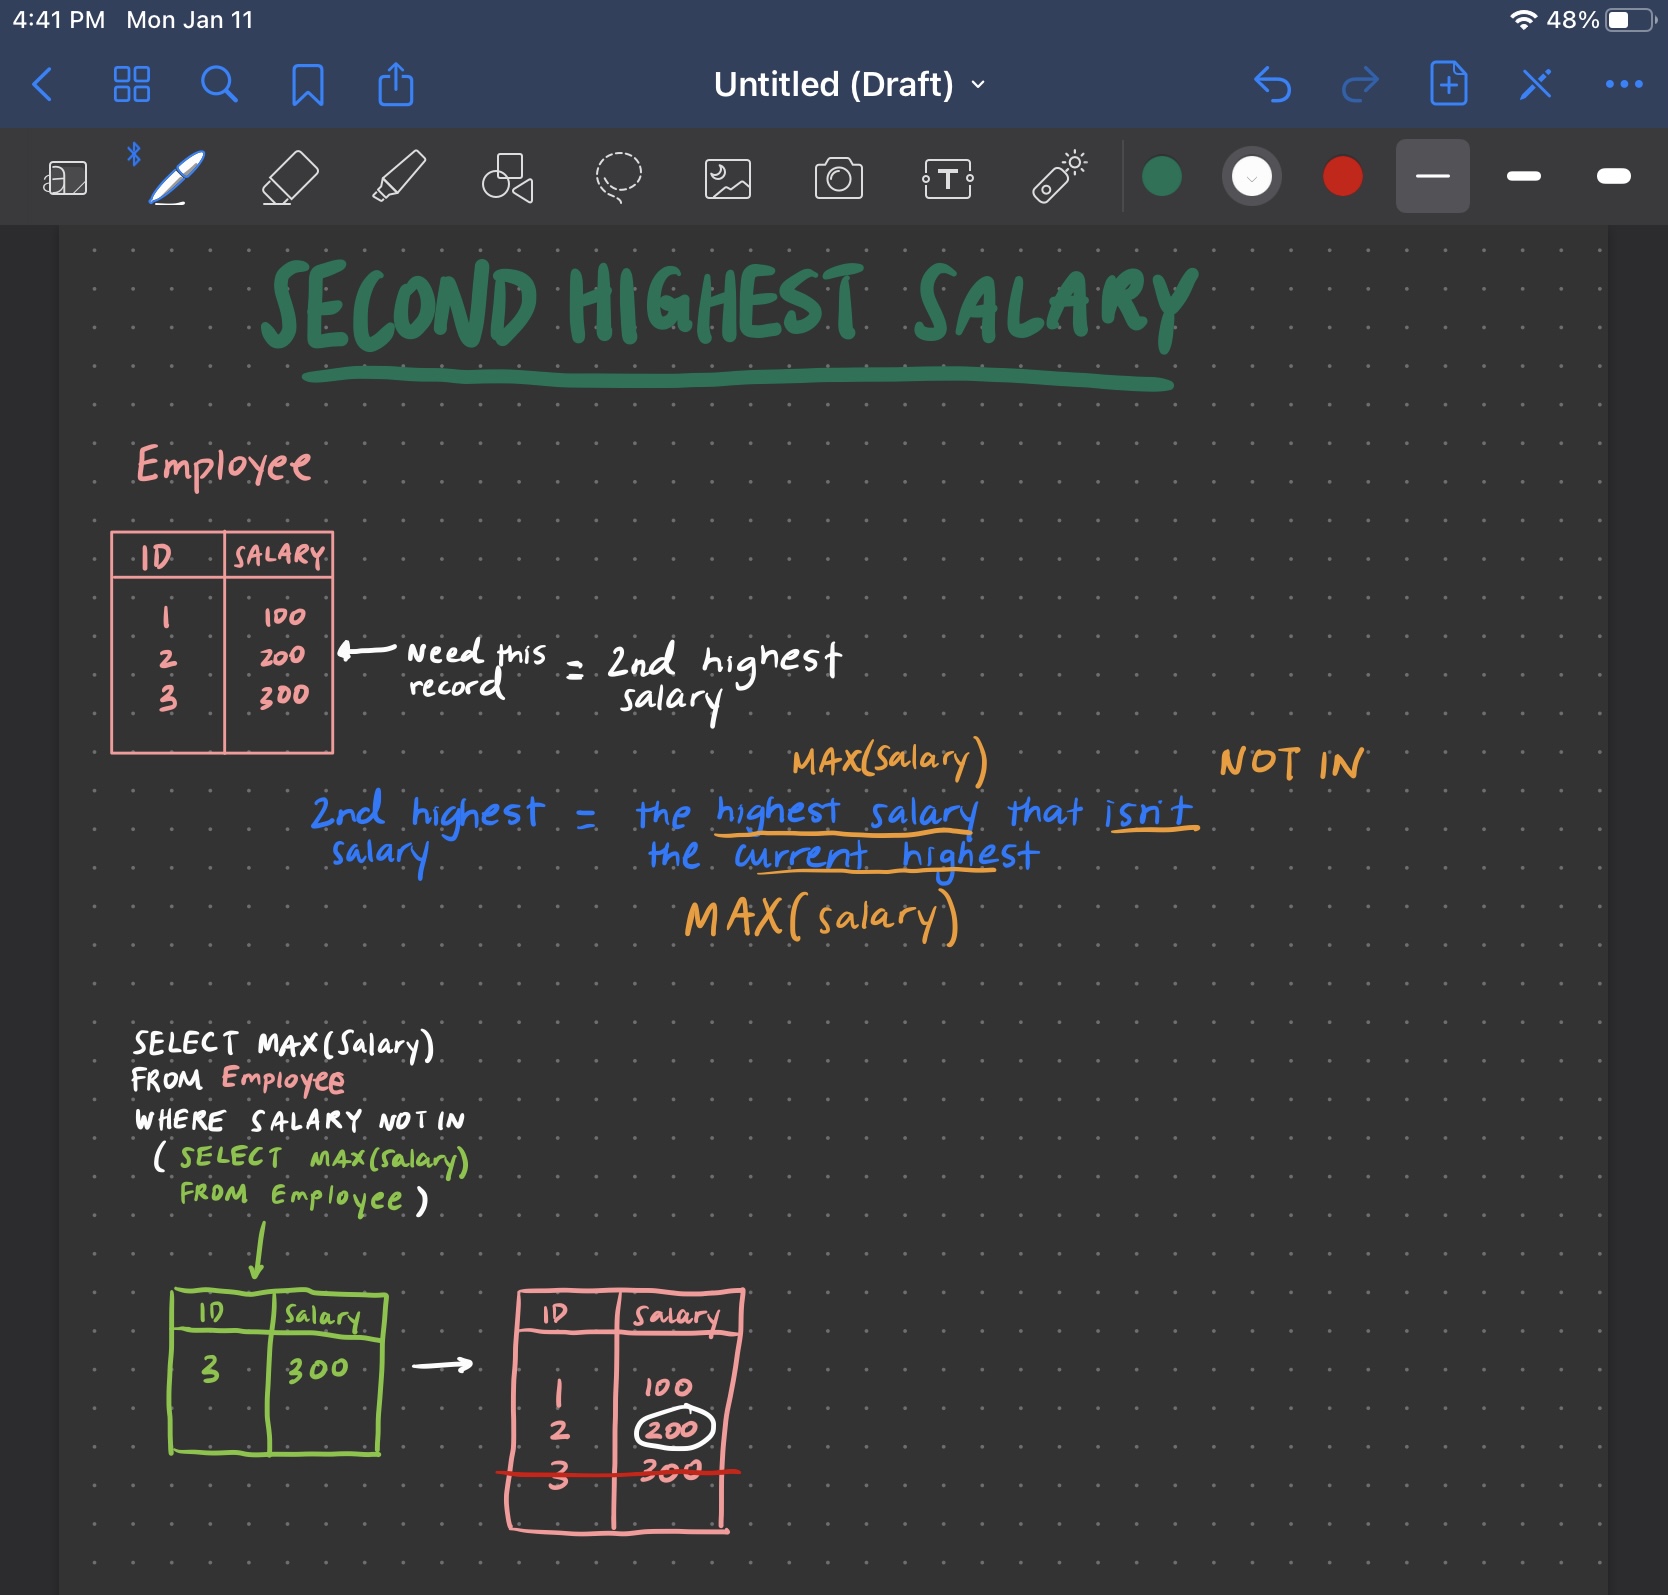 4:41 PM Mon Jan 11
48%
Untitled (Draft)
T
SECOND HIGHEST SALARY
Employee
ID SALARY
1 100
2 200
3 300
Need this
record
= 2nd highest
salary
MAX(salary) NOT IN
2nd highest = the highest salary that isn't
salary the current highest
MAX(salary)
SELECT MAX(Salary)
FROM Employee
WHERE SALARY NOT IN
( SELECT MAX(salary)
FROM Employee )
ID Salary
3 300
ID Salary
1 100
2 200
3 300